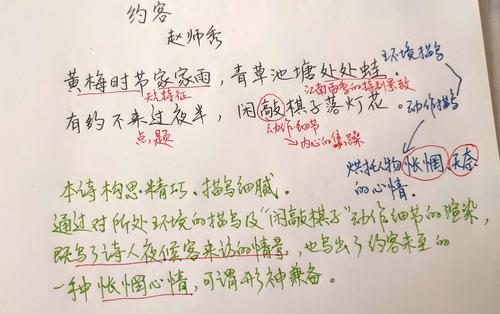 约客
赵师秀
黄梅时节家家雨，青草池塘处处蛙。
环境描写
天气特征
江南雨季的特别景致
有约不来过夜半，闲敲棋子落灯花。
动作描写
点题
动作细节
→内心的焦躁
烘托人物怅惘、无奈
的心情.
本诗构思精巧.描写细腻.
通过对所处环境的描写及"闲敲棋子"动作细节的渲染,
既写了诗人夜候客来访的情景,也写出了约客未至的
一种怅惘心情,可谓形神兼备。